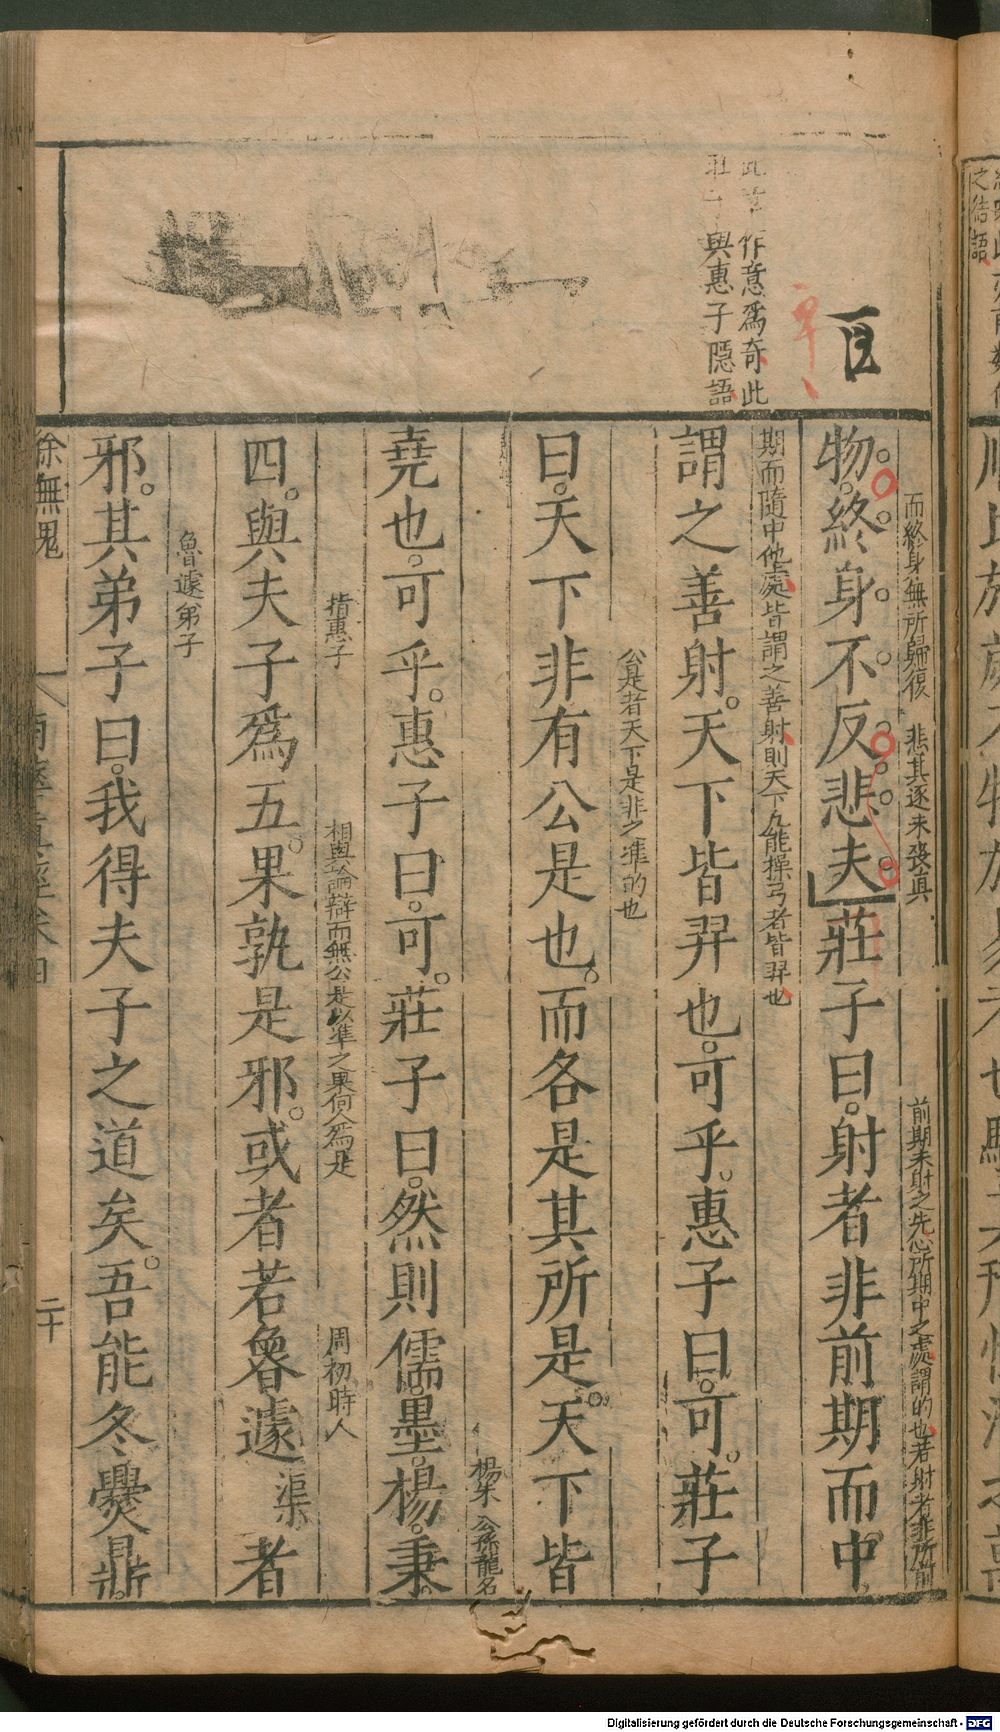 作意爲奇此
與惠子隱語
而終身無所歸復　悲其逐末發真
前期未射之先心所期中之處謂的也若射者非所前
物終身不反悲夫莊子曰射者非前期而中
期而隨中他處皆謂之善射則天下凡能操弓者皆羿也
謂之善射天下皆羿也可乎惠子曰可莊子
公是者天下是非之準的也
曰天下非有公是也而各是其所是天下皆
楊朱　公孫龍名
堯也可乎惠子曰可莊子曰然則儒墨楊秉
指惠子
相與論辯而無公是以準之果何人爲是
周初時人
四與夫子爲五果孰是邪或者若魯遽渠者
魯遽弟子
邪其弟子曰我得夫子之道矣吾能冬爨鼎
徐無鬼
南華真經卷四
二十
之結語
Digitalisierung gefördert durch die Deutsche Forschungsgemeinschaft - DFG